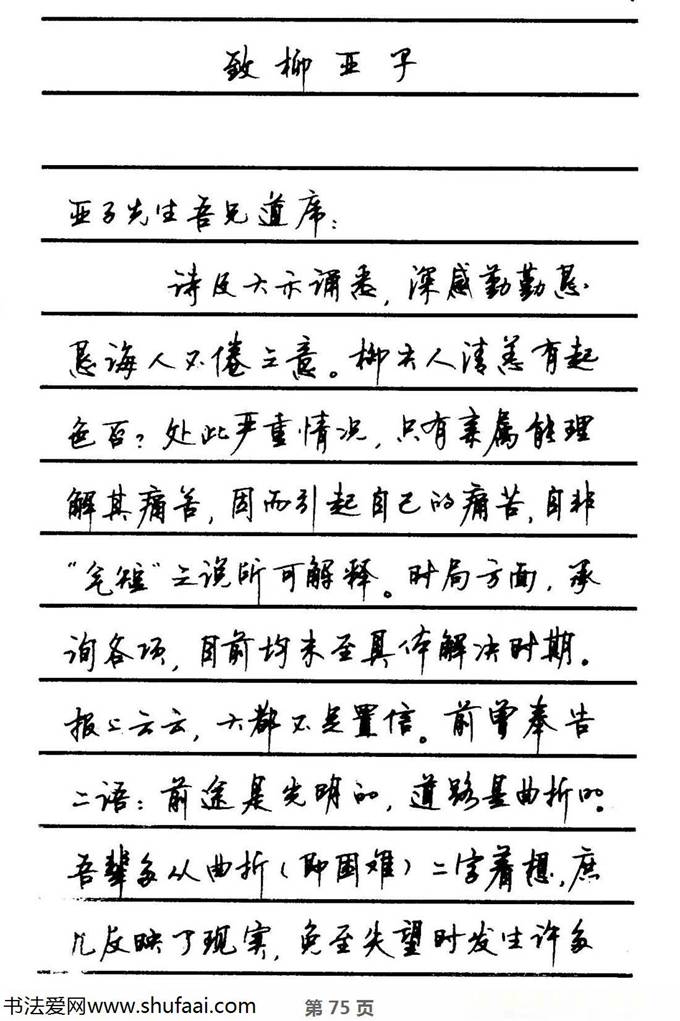 致柳亚子
亚子先生吾兄道席：
诗及大示诵悉，深感勤勤恳
恳诲人不倦之意。柳夫人清恙有起
色否？处此严重情况，只有亲属能理
解其痛苦，因而引起自己的痛苦，自非
“气短”之说所可解释。时局方面，承
询各项，目前均未至具体解决时期。
报上云云，大都不足置信。前曾奉告
二语：前途是光明的，道路是曲折的。
吾辈多从曲折（即困难）二字着想，庶
几反映了现实，免至失望时发生许多
书法爱网www.shufaai.com
第 75 页